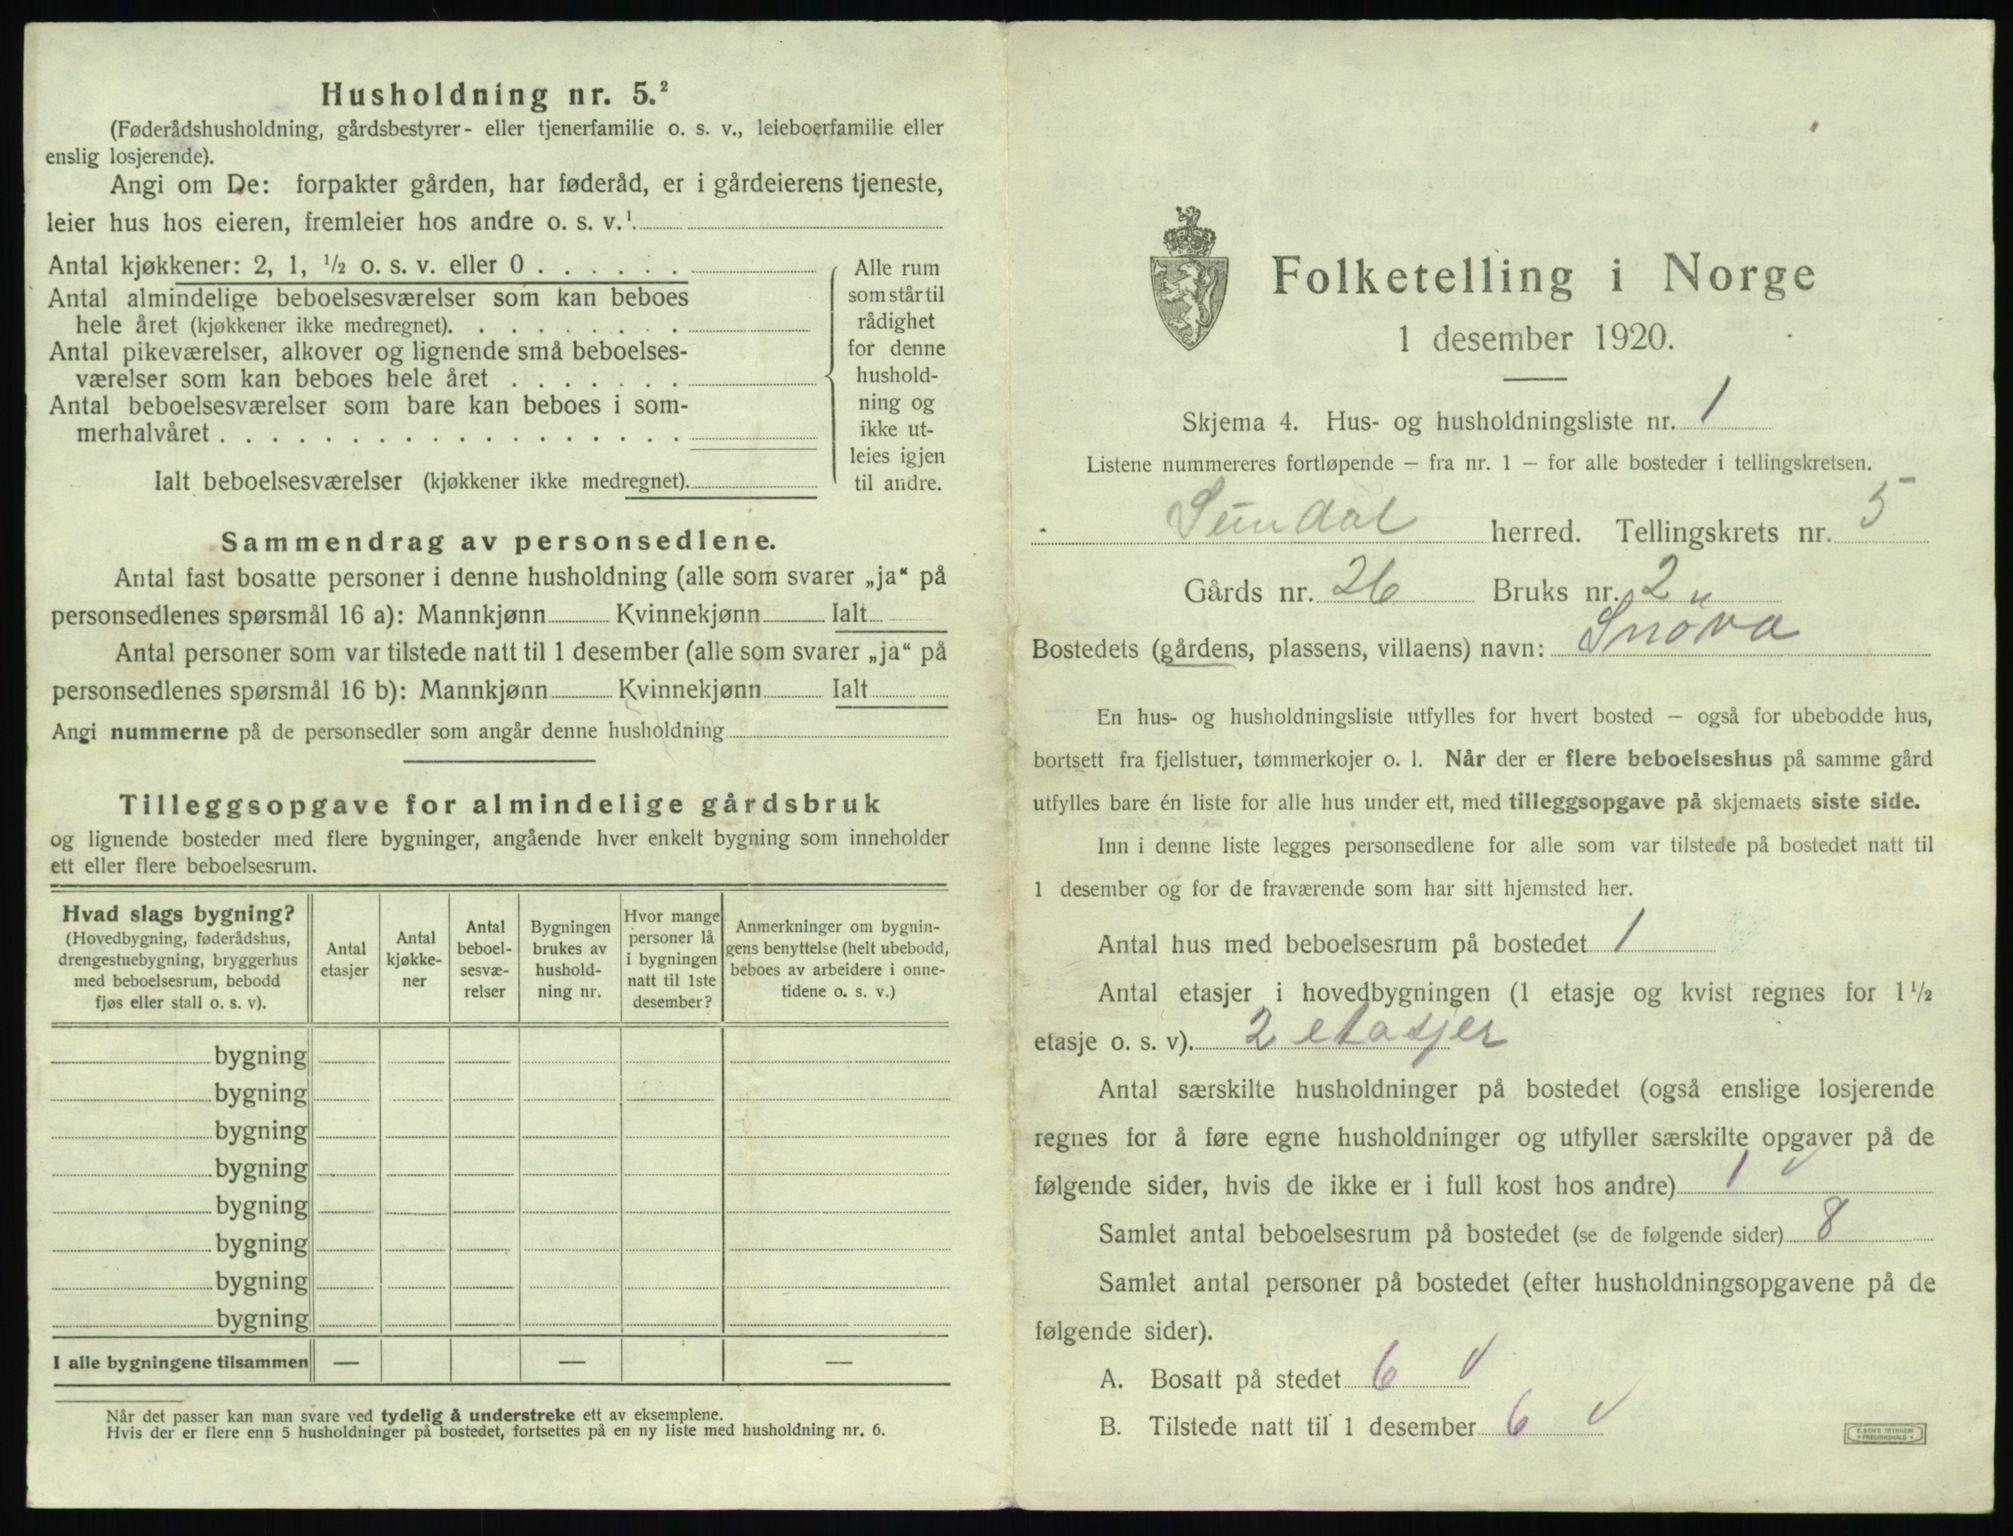 Husholdning nr. 5.²
(Føderådshusholdning, gårdsbestyrer- eller tjenerfamilie o. s. v., leieboerfamilie eller
enslig losjerende).
Angi om De: forpakter gården, har føderåd, er i gårdeierens tjeneste,
leier hus hos eieren, fremleier hos andre o. s. v.¹
Antal kjøkkener: 2, 1, ½ o. s. v. eller 0 . . . . . .
Antal almindelige beboelsesværelser som kan beboes
hele året (kjøkkener ikke medregnet). . . . . . . . .
Antal pikeværelser, alkover og lignende små beboelses-
værelser som kan beboes hele året . . . . . . .
Antal beboelsesværelser som bare kan beboes i som-
merhalvåret . . . . . . . . . . . . . . . . . .
Ialt beboelsesværelser (kjøkkener ikke medregnet).
Alle rum
som står til
rådighet
for denne
hushold-
ning og
ikke ut-
leies igjen
til andre.
Sammendrag av personsedlene.
Antal fast bosatte personer i denne husholdning (alle som svarer „ja“ på
personsedlenes spørsmål 16 a): Mannkjønn Kvinnekjønn Ialt
Antal personer som var tilstede natt til 1 desember (alle som svarer „ja“ på
personsedlenes spørsmål 16 b): Mannkjønn Kvinnekjønn Ialt
Angi nummerne på de personsedler som angår denne husholdning
Tilleggsopgave for almindelige gårdsbruk
og lignende bosteder med flere bygninger, angående hver enkelt bygning som inneholder
ett eller flere beboelsesrum.
Hvad slags bygning?
(Hovedbygning, føderådshus,
drengestuebygning, bryggerhus
med beboelsesrum, bebodd
fjøs eller stall o. s. v).
Antal
etasjer
Antal
kjøkke-
ner
Antal
beboel-
sesvæ-
relser
Bygningen
brukes av
hushold-
ning nr.
Hvor mange
personer lå
i bygningen
natt til 1ste
desember?
Anmerkninger om bygnin-
gens benyttelse (helt ubebodd,
beboes av arbeidere i onne-
tidene o. s. v.)
bygning
bygning
bygning
bygning
bygning
bygning
bygning
bygning
I alle bygningene tilsammen — — —
Når det passer kan man svare ved tydelig å understreke ett av eksemplene.
Hvis der er flere enn 5 husholdninger på bostedet, fortsettes på en ny liste med husholdning nr. 6.
Folketelling i Norge
1 desember 1920.
Skjema 4. Hus- og husholdningsliste nr. 1
Listene nummereres fortløpende – fra nr. 1 – for alle bosteder i tellingskretsen.
Sundal herred. Tellingskrets nr. 5
Gårds nr. 26 Bruks nr. 2
Bostedets (gårdens, plassens, villaens) navn: Snöva
En hus- og husholdningsliste utfylles for hvert bosted – også for ubebodde hus,
bortsett fra fjellstuer, tømmerkojer o. l. Når der er flere beboelseshus på samme gård
utfylles bare én liste for alle hus under ett, med tilleggsopgave på skjemaets siste side.
Inn i denne liste legges personsedlene for alle som var tilstede på bostedet natt til
1 desember og for de fraværende som har sitt hjemsted her.
Antal hus med beboelsesrum på bostedet 1
Antal etasjer i hovedbygningen (1 etasje og kvist regnes for 1½
etasje o. s. v). 2 etasjer
Antal særskilte husholdninger på bostedet (også enslige losjerende
regnes for å føre egne husholdninger og utfyller særskilte opgaver på de
følgende sider, hvis de ikke er i full kost hos andre) 1 √
Samlet antal beboelsesrum på bostedet (se de følgende sider) 8
Samlet antal personer på bostedet (efter husholdningsopgavene på de
følgende sider).
A. Bosatt på stedet 6 √
B. Tilstede natt til 1 desember 6 √